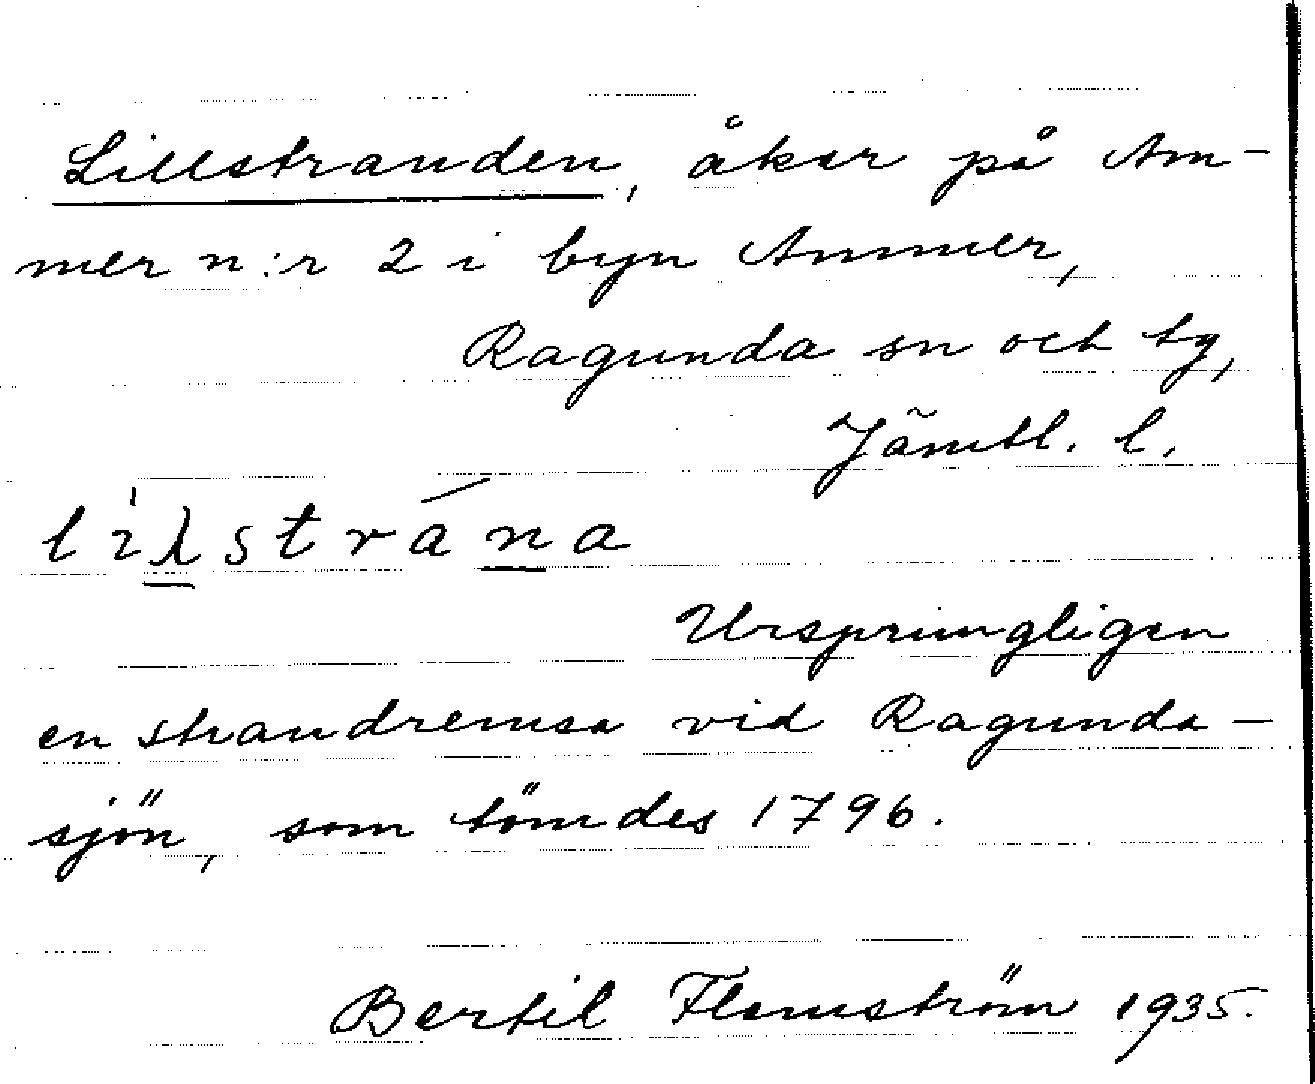 Lillstranden, åker på Am-
mer n:r 2 i byn Ammer,
Ragunda sn och tg,
Jämtl. l.
liλstrána
Ursprungligen
en strandremsa vid Ragunda-
sjön, som tömdes 1796.
Bertil Flemström 1935.